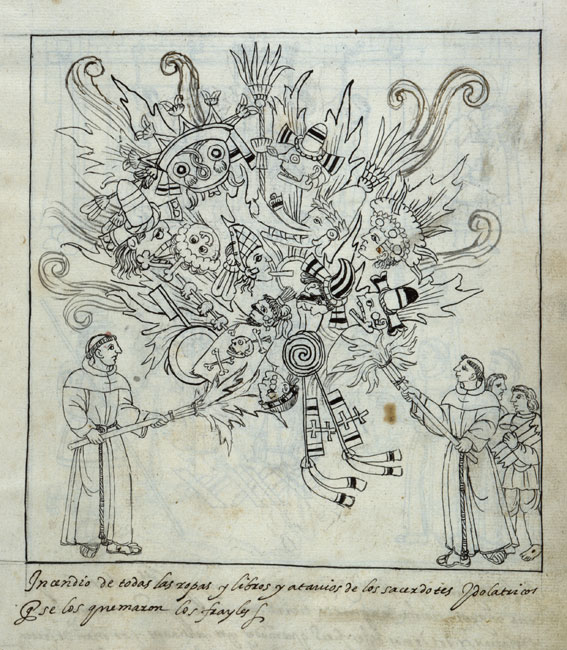 Incendio de todas las ropas y libros y atauios de los sacerdotes ydolatricos
q se los quemaron los frayles